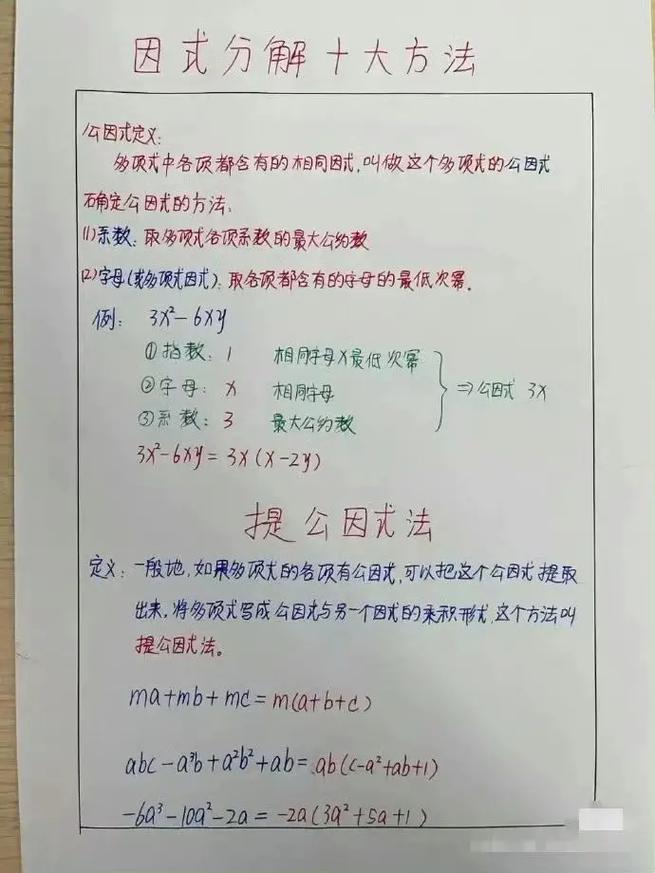 因式分解十大方法
公因式定义:
多项式中各项都含有的相同因式,叫做这个多项式的公因式
确定公因式的方法:
(1)系数:取多项式各项系数的最大公约数
(2)字母(或多项式因式):取各项都含有的字母的最低次幂。
例: 3x²-6xy
①指数: 1 相同字母x最低次幂
②字母: x 相同字母
③系数: 3 最大公约数
⇒公因式 3x
3x²-6xy=3x(x-2y)
提公因式法
定义:一般地,如果多项式的各项有公因式,可以把这个公因式提取
出来,将多项式写成公因式与另一个因式的乘积形式,这个方法叫
提公因式法。
ma+mb+mc=m(a+b+c)
abc-a³b+a²b²+ab=ab(c-a²+ab+1)
-6a³-10a²-2a=-2a(3a²+5a+1)